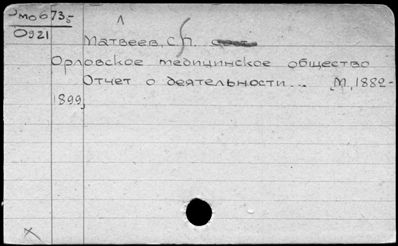 Эмо673₅
0921
Матвеев, С.П.
Орловское медицинское общество
Отчет о деятельности... М, 1882-
1899,